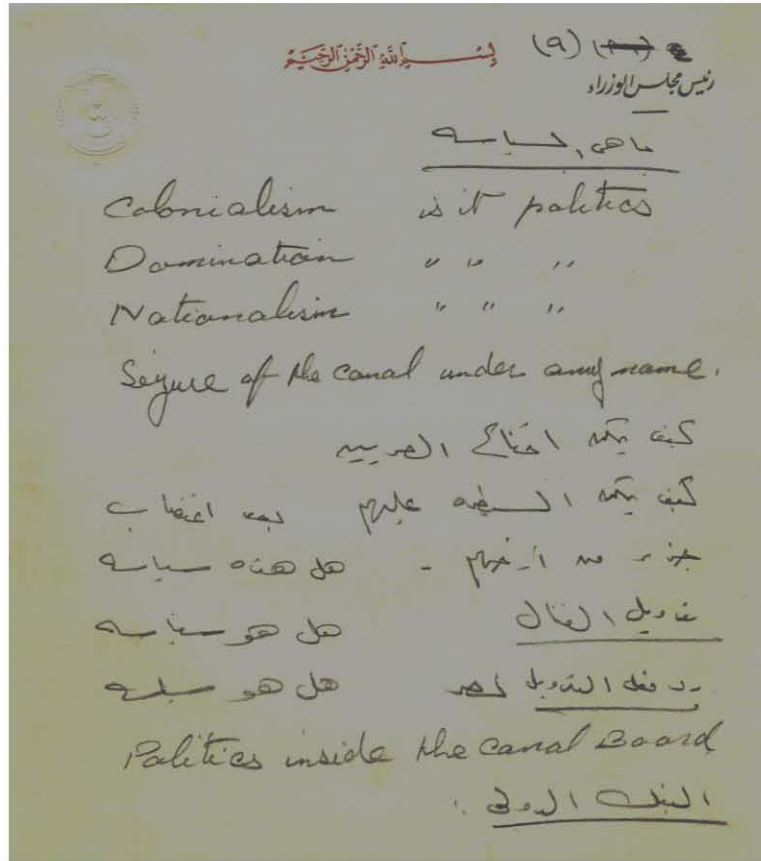 (٩)
بسم الله الرحمن الرحيم
رئيس مجلس الوزراء
ما هى السياسه
Colonialism is it politics
Domination " " "
Nationalism " " "
Seizure of the canal under any name.
كيف يمكن اقناع المصريين
كيف يمكن السيطره عليهم بعد اغتصاب
جزء من أرضهم - هل هذه سياسه
تدويل القنال هل هو سياسه
رد فعل التدويل لمصر هل هو سياسه
Politics inside the Canal Board
البنك الدولى :